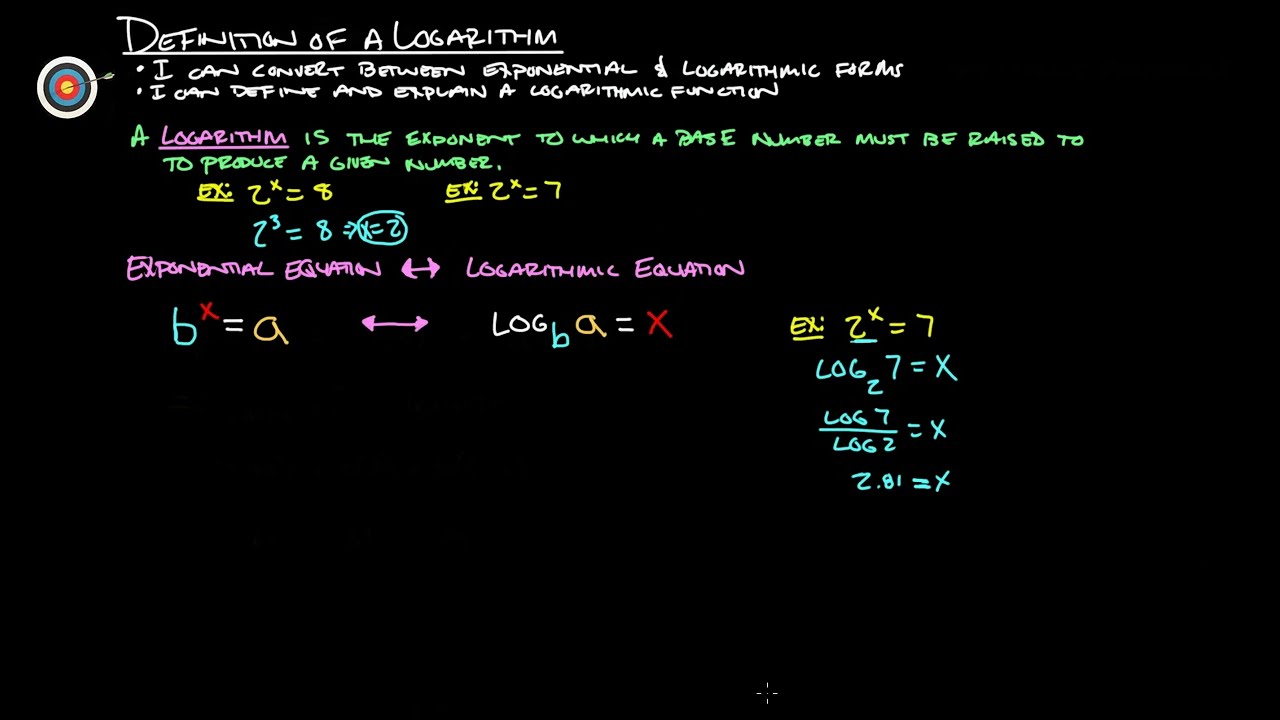 DEFINITION OF A LOGARITHM
• I CAN CONVERT BETWEEN EXPONENTIAL & LOGARITHMIC FORMS
• I CAN DEFINE AND EXPLAIN A LOGARITHMIC FUNCTION
A LOGARITHM IS THE EXPONENT TO WHICH A BASE NUMBER MUST BE RAISED TO
TO PRODUCE A GIVEN NUMBER.
EX: 2ˣ = 8 EX: 2ˣ = 7
2³ = 8 ⇒ x = 2
EXPONENTIAL EQUATION ↔ LOGARITHMIC EQUATION
bˣ = a ↔ LOG_b a = x
EX: 2ˣ = 7
LOG₂ 7 = x
LOG 7 / LOG 2 = x
2.81 = x